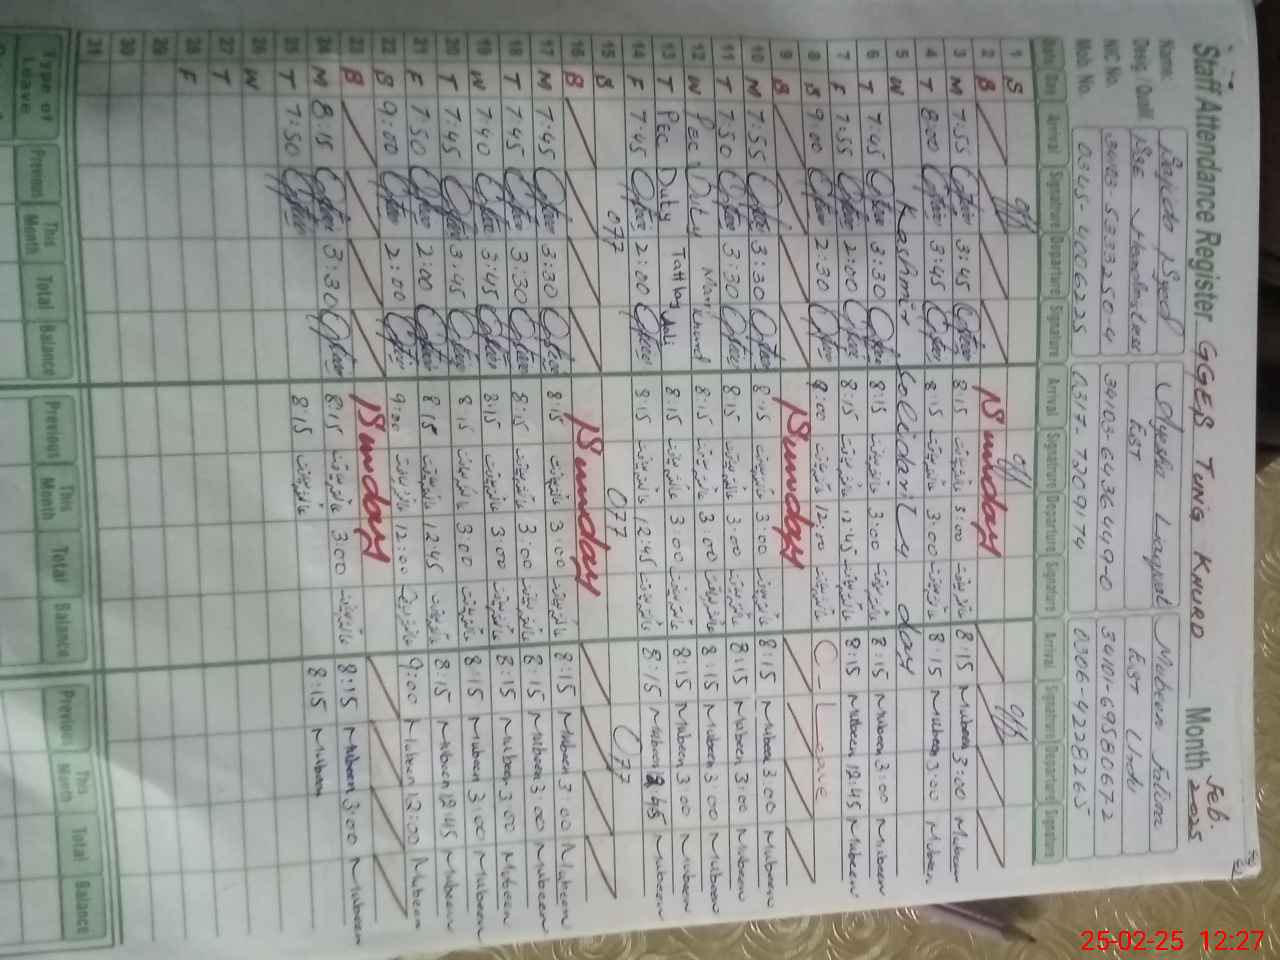 Staff Attendance Register GGES Tung Khurd Month Feb. 2025
Name: Sajida Syed Ayesha Liaquat Mubeen
Desig. Quali. EST EST Urdu
NIC No. 34103-5333250-4 34103-6436449-0 34101-6958067-2
Mob No. 0345-4006225 0317-7209174 0306-4228265
Date Day Arrival Signature Departure Signature Arrival Signature Departure Signature Arrival Signature Departure Signature
1 S off off off
2 S Sunday
3 M 7:55 3:45 8:15 عائشہ لیاقت 3:00 8:15 Mubeen 3:00 Mubeen
4 T 8:00 3:45 8:15 عائشہ لیاقت 3:00 عائشہ لیاقت 8:15 Mubeen 3:00 Mubeen
5 W Kashmir Solidarity day
6 T 7:45 3:30 8:15 عائشہ لیاقت 3:00 عائشہ لیاقت 8:15 Mubeen 3:00 Mubeen
7 F 7:55 2:00 8:15 عائشہ لیاقت 12:45 عائشہ لیاقت 8:15 Mubeen 12:45 Mubeen
8 S 9:00 2:30 9:00 عائشہ لیاقت 12:00 عائشہ لیاقت C-Leave
9 S Sunday
10 M 7:55 3:30 8:15 عائشہ لیاقت 3:00 عائشہ لیاقت 8:15 Mubeen 3:00 Mubeen
11 T 7:50 3:30 8:15 عائشہ لیاقت 3:00 عائشہ لیاقت 8:15 Mubeen 3:00 Mubeen
12 W Pec Duty 8:15 عائشہ لیاقت 3:00 عائشہ لیاقت 8:15 Mubeen 3:00 Mubeen
13 T Pec Duty 8:15 عائشہ لیاقت 3:00 عائشہ لیاقت 8:15 Mubeen 3:00 Mubeen
14 F 7:45 2:00 8:15 عائشہ لیاقت 12:45 عائشہ لیاقت 8:15 Mubeen Mubeen
15 S off off off
16 S Sunday
17 M 7:45 3:30 8:15 عائشہ لیاقت 3:00 عائشہ لیاقت 8:15 Mubeen 3:00 Mubeen
18 T 7:45 3:30 8:15 عائشہ لیاقت 3:00 عائشہ لیاقت 8:15 Mubeen 3:00 Mubeen
19 W 7:40 3:45 8:15 عائشہ لیاقت 3:00 عائشہ لیاقت 8:15 Mubeen 3:00 Mubeen
20 T 7:45 3:45 8:15 عائشہ لیاقت 3:00 عائشہ لیاقت 8:15 Mubeen 3:00 Mubeen
21 F 7:50 2:00 8:15 عائشہ لیاقت 12:45 عائشہ لیاقت 8:15 Mubeen 12:45 Mubeen
22 S 9:00 2:00 9:00 عائشہ لیاقت 12:00 عائشہ لیاقت 9:00 Mubeen 12:00 Mubeen
23 S Sunday
24 M 8:15 3:30 8:15 عائشہ لیاقت 3:00 عائشہ لیاقت 8:15 Mubeen 3:00 Mubeen
25 T 7:50 8:15 عائشہ لیاقت 8:15 Mubeen
26 W
27 T
28 F
29
30
31
Type of Leave Previous This Month Total Balance Previous This Month Total Balance Previous This Month Total Balance
25-02-25 12:27